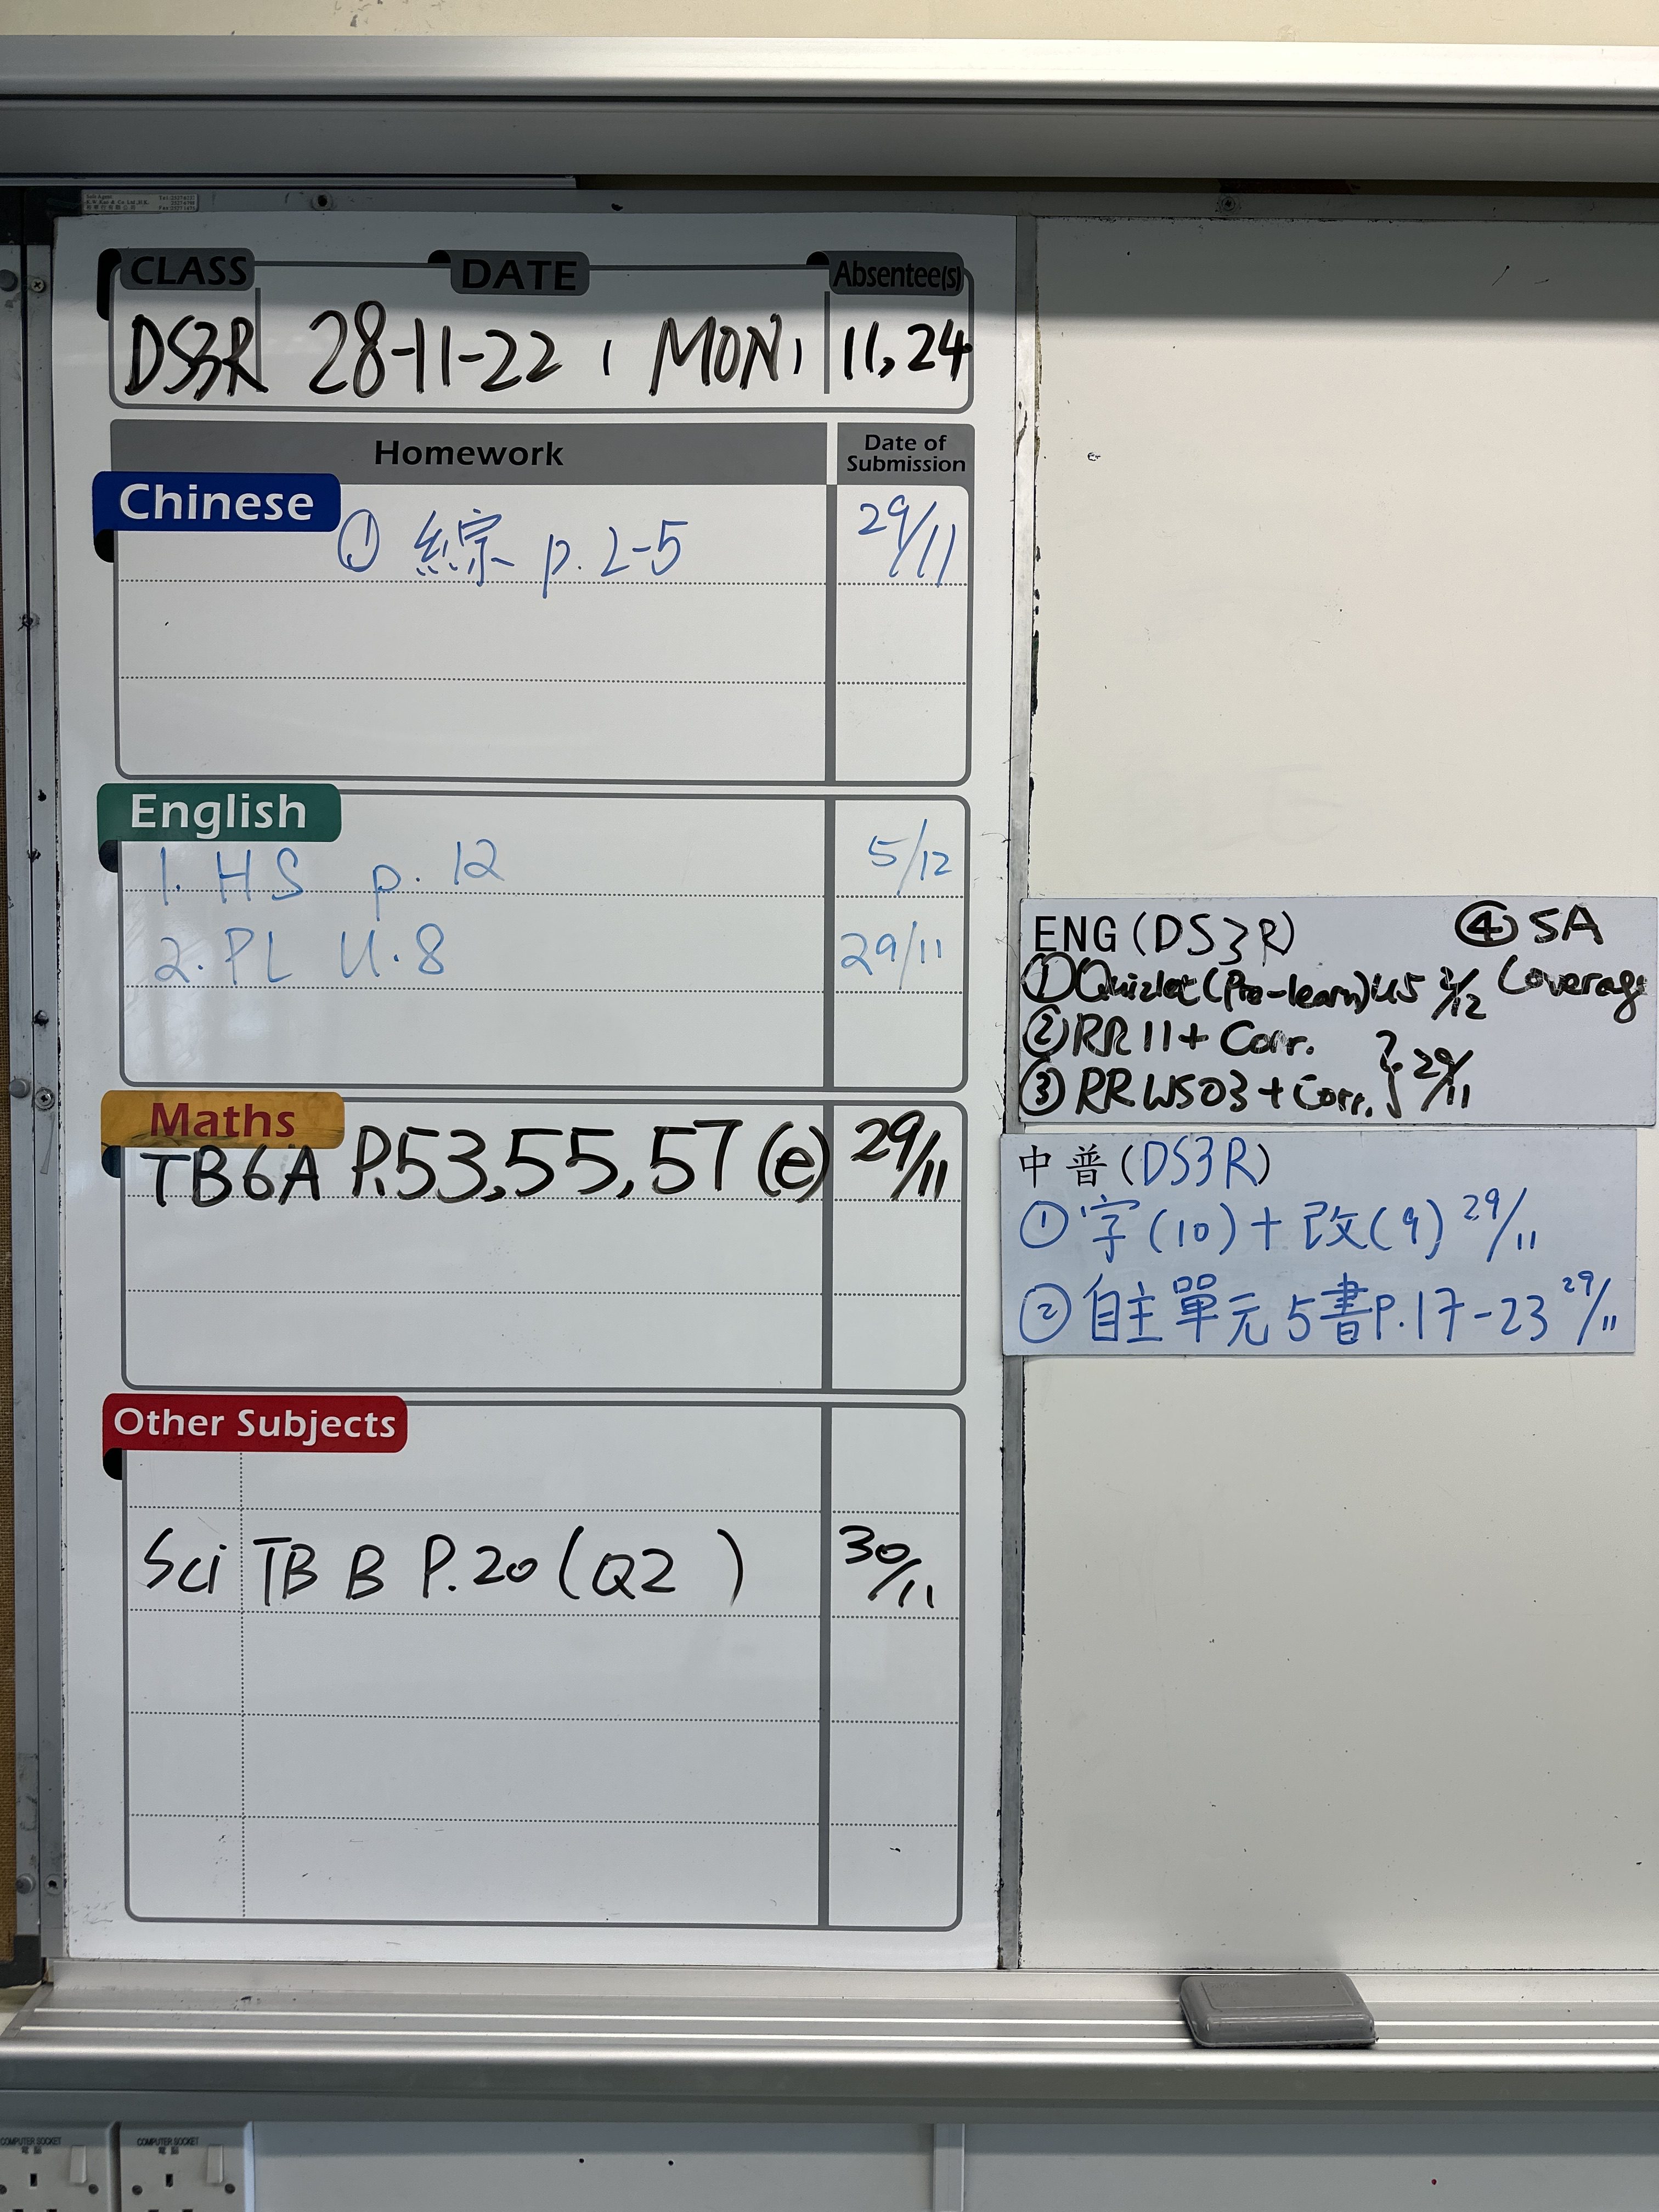 CLASS DATE Absentee(s)
DS3R 28-11-22, MON, 11,24
Homework Date of Submission
Chinese
① 綜 p.2-5 29/11
English
1. HS p.12 5/12
2. PL U.8 29/11
Maths
TB6A P.53,55,57 (e) 29/11
Other Subjects
Sci TB B P.20 (Q2 ) 30/11
ENG (DS3R) ④ SA Coverage
① Quizlet (Pre-learn) U5
② RR 11 + Corr.
③ RR WS03 + Corr. } 29/11
中普 (DS3R)
① 字(10) + 改(9) 29/11
② 自主單元5書P.17-23 29/11
COMPUTER SOCKET
電腦
COMPUTER SOCKET
電腦